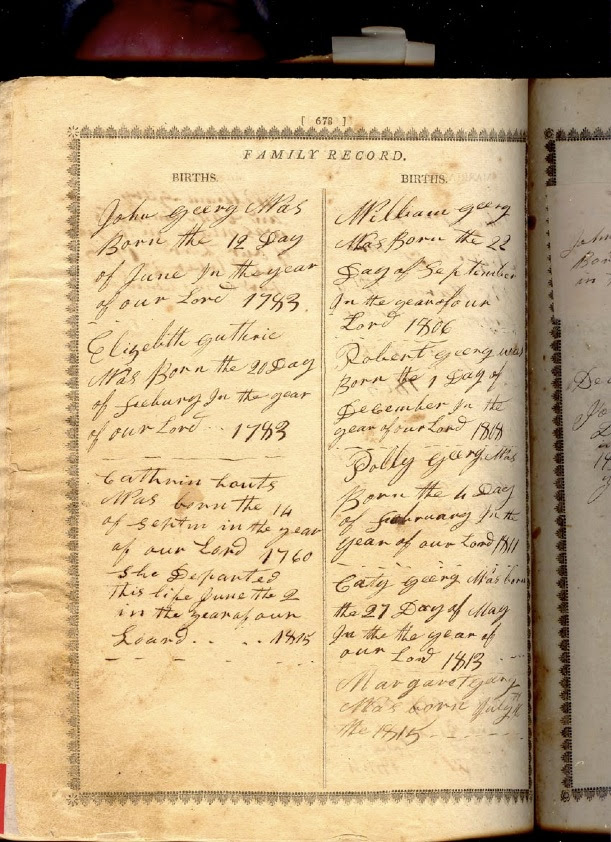 [ 678 ]
FAMILY RECORD.
BIRTHS.
John Georg Was
Born the 12 Day
of June In the year
of our Lord 1783
Elizebeth Guthrie
Was Born the 20 Day
of In the year
of our Lord .. 1783
Cathrin houts
Was born the 14
of Septm in the year
of our Lord 1760
She Departed
this life June the 2
in the year of our
Loard . . . . 1815
BIRTHS.
William Georg
Was Born the 22
Day of September
In the year of our
Lord 1806
Robert Georg was
Born the 1 Day of
December In the
year of our Lord 1808
Polly Georg Was
Born the 4 Day
of February In the
year of our Lord 1811
Caty Georg Was born
the 27 Day of May
In the the year of
our Lord 1813
Margaret
Was born July
the 1815